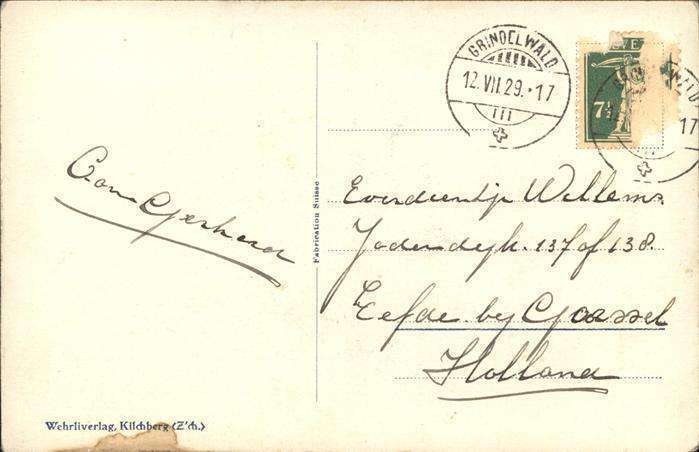 GRINDELWALD
12.VII.29.-17
III
VE
7½
17
Oom Gerhard
Fabrication Suisse
Everdientje Willems
137 of 138.
Eefde by Gorssel
Holland
Wehrliverlag, Kilchberg (Z'ch.)